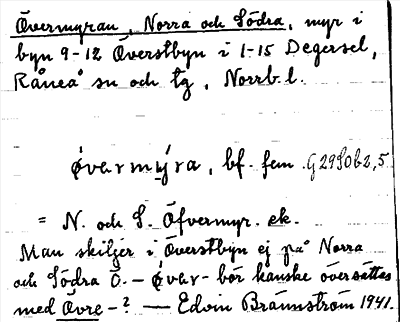 Övermyran, Norra och Södra, myr i
byn 9-12 Överstbyn i 1-15 Degersel,
Råneå sn och tg, Norrb. l.
øvarmy̍ra, bf. fem. G29S0b2,5
= N. och S. Öfvermyr. ek.
Man skiljer i Överstbyn ej på Norra
och Södra Ö. — øvar- bör kanske översättas
med Övre-? — Edvin Brännström 1941.